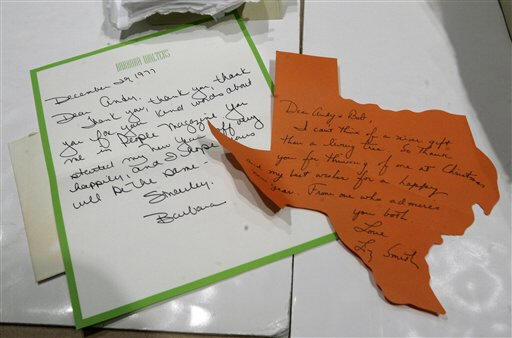 BARBARA WALTERS
December 29, 1977
Dear Andy,
Thank you, thank you, thank
you for your kind words about
me in People Magazine. You
started my New Year off very
happily, and I hope yours
will be the same.
Sincerely,
Barbara
Dear Andy & Bob,
I can't think of a nicer gift
than a living tree. So thank
you for thinking of me at Christmas
and my best wishes for a happy
new year. From one who admires
you both.
Love
Liz Smith